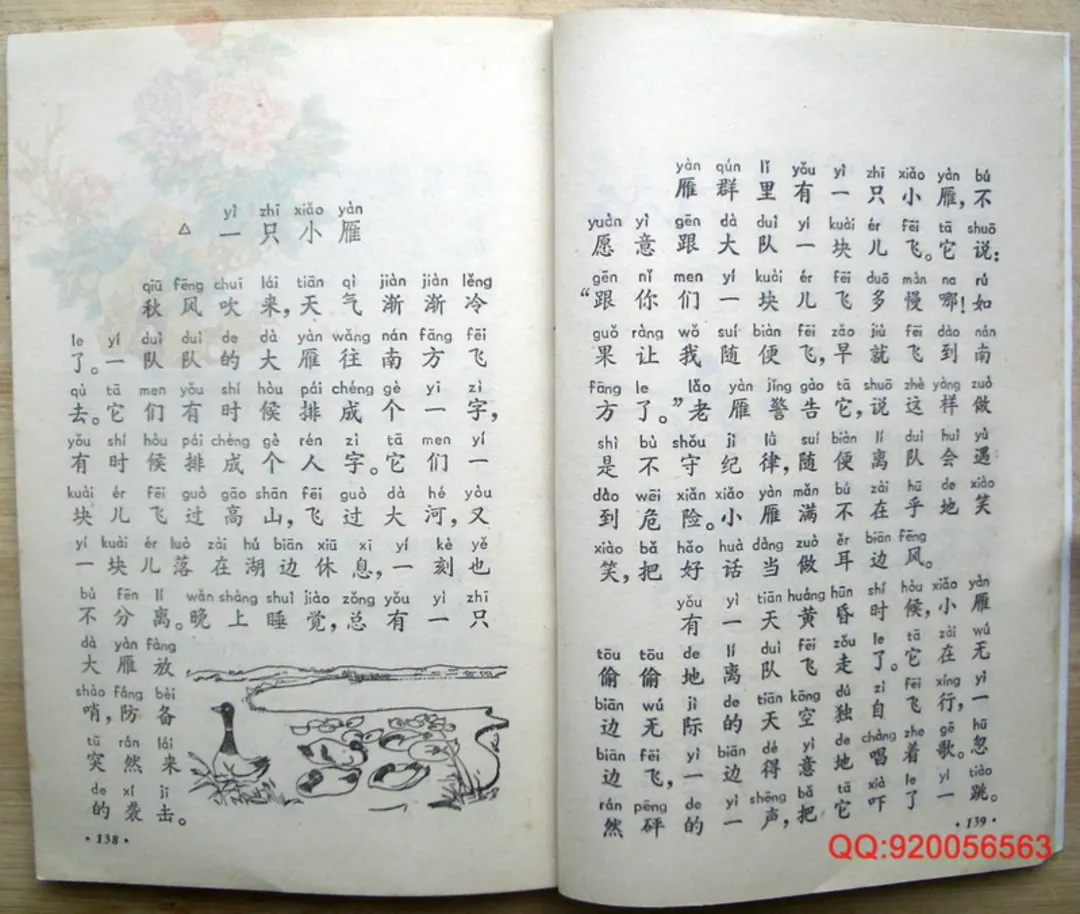 yì zhī xiǎo yàn
△ 一只小雁
qiū fēng chuī lái tiān qì jiàn jiàn lěng
秋风吹来，天气渐渐冷
le yí duì duì de dà yàn wǎng nán fāng fēi
了。一队队的大雁往南方飞
qù tā men yǒu shí hòu pái chéng gè yī zì
去。它们有时候排成个一字，
yǒu shí hòu pái chéng gè rén zì tā men yí
有时候排成个人字。它们一
kuài ér fēi guò gāo shān fēi guò dà hé yòu
块儿飞过高山，飞过大河，又
yí kuài ér luò zài hú biān xiū xi yí kè yě
一块儿落在湖边休息，一刻也
bù fēn lí wǎn shàng shuì jiào zǒng yǒu yì zhī
不分离。晚上睡觉，总有一只
dà yàn fàng
大雁放
shào fáng bèi
哨，防备
tū rán lái
突然来
de xí jī
的袭击。
·138·
yàn qún lǐ yǒu yì zhī xiǎo yàn bú
雁群里有一只小雁，不
yuàn yì gēn dà duì yí kuài ér fēi tā shuō
愿意跟大队一块儿飞。它说：
gēn nǐ men yí kuài ér fēi duō màn na rú
“跟你们一块儿飞多慢哪！如
guǒ ràng wǒ suí biàn fēi zǎo jiù fēi dào nán
果让我随便飞，早就飞到南
fāng le lǎo yàn jǐng gào tā shuō zhè yàng zuò
方了。”老雁警告它，说这样做
shì bù shǒu jì lǜ suí biàn lí duì huì yù
是不守纪律，随便离队会遇
dào wēi xiǎn xiǎo yàn mǎn bú zài hū de xiào
到危险。小雁满不在乎地笑
xiào bǎ hǎo huà dàng zuò ěr biān fēng
笑，把好话当做耳边风。
yǒu yì tiān huáng hūn shí hòu xiǎo yàn
有一天黄昏时候，小雁
tōu tōu de lí duì fēi zǒu le tā zài wú
偷偷地离队飞走了。它在无
biān wú jì de tiān kōng dú zì fēi xíng yì
边无际的天空独自飞行，一
biān fēi yì biān dé yì de chàng zhe gē hū
边飞，一边得意地唱着歌。忽
rán pēng de yì shēng bǎ tā xià le yí tiào
然砰的一声，把它吓了一跳。
·139·
QQ:920056563